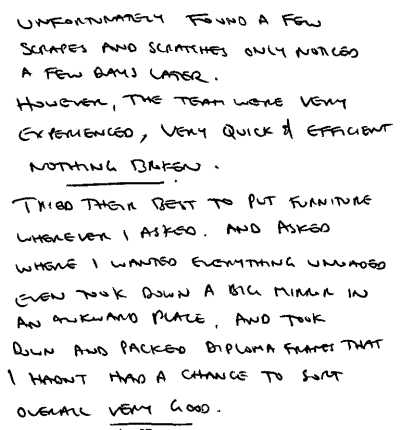 UNFORTUNATELY FOUND A FEW
SCRAPES AND SCRATCHES ONLY NOTICED
A FEW DAYS LATER.
HOWEVER, THE TEAM WERE VERY
EXPERIENCED, VERY QUICK & EFFICIENT
NOTHING BROKEN.
TRIED THEIR BEST TO PUT FURNITURE
WHEREVER I ASKED. AND ASKED
WHERE I WANTED EVERYTHING UNLOADED
EVEN TOOK DOWN A BIG MIRROR IN
AN AWKWARD PLACE, AND TOOK
DOWN AND PACKED DIPLOMA FRAMES THAT
I HADNT HAD A CHANCE TO SORT
OVERALL VERY GOOD.